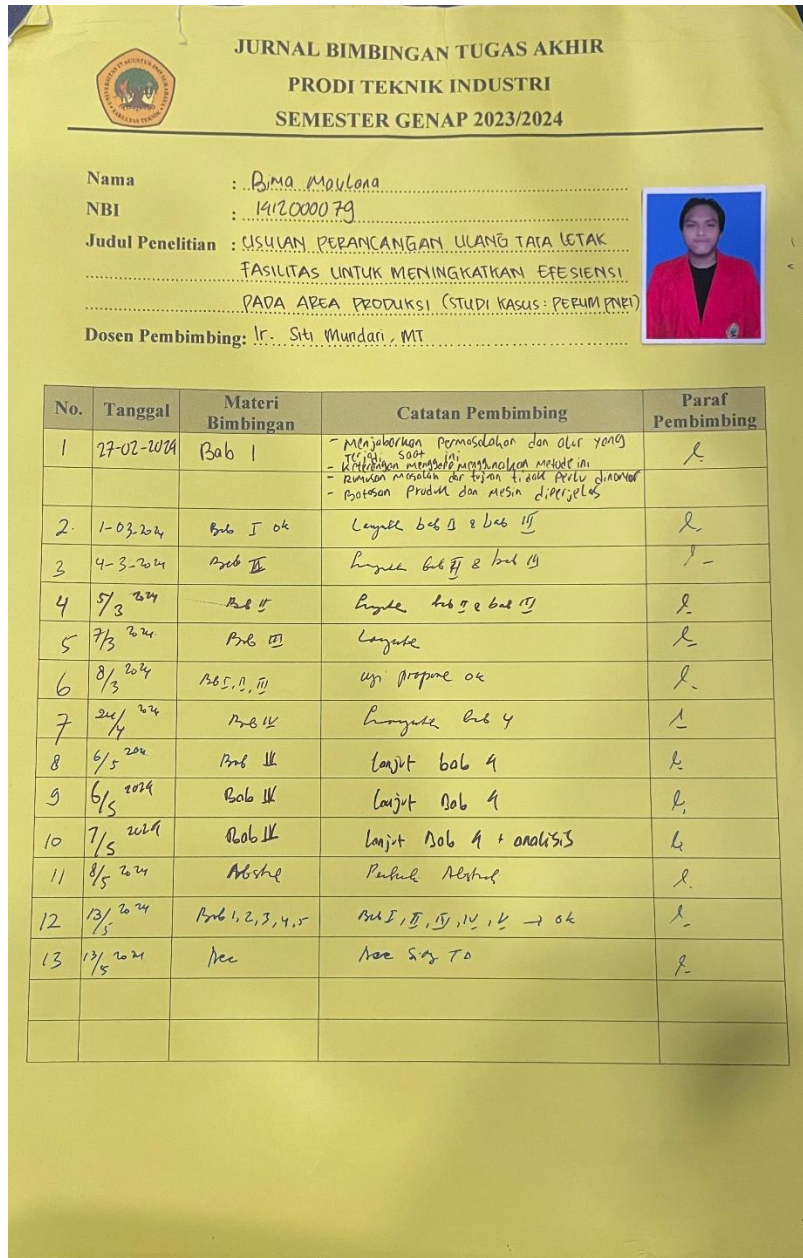 JURNAL BIMBINGAN TUGAS AKHIR
PRODI TEKNIK INDUSTRI
SEMESTER GENAP 2023/2024
Nama : Bima Maulana
NBI : 1412000079
Judul Penelitian : USULAN PERANCANGAN ULANG TATA LETAK
FASILITAS UNTUK MENINGKATKAN EFESIENSI
PADA AREA PRODUKSI (STUDI KASUS : PERUM PNRI)
Dosen Pembimbing: Ir. Siti Mundari, MT
No. Tanggal Materi Bimbingan Catatan Pembimbing Paraf Pembimbing
1 27-02-2024 Bab 1 - Menjabarkan Permasalahan dan alur yang
Terjadi saat ini
- Keterangan menggunakan Metode ini
- Rumusan Masalah dan tujuan tidak perlu dinomor
- Batasan Produk dan Mesin diperjelas
2. 1-03-2024 Bab I ok bab II & bab III
3 4-3-2024 Bab II bab II & bab III
4 5/3 2024 Bab II bab II & bab III
5 7/3 2024 Bab III
6 8/3 2024 Bab I, II, III ok
7 24/4 2024 Bab IV bab 4
8 6/5 2024 Bab IV Lanjut bab 4
9 6/5 2024 Bab IV Lanjut Bab 4
10 7/5 2024 Bab IV Lanjut Bab 4 + analisis
11 8/5 2024
12 13/5 2024 Bab 1, 2, 3, 4, 5 Bab I, II, III, IV, V → ok
13 13/5 2024 Acc Acc